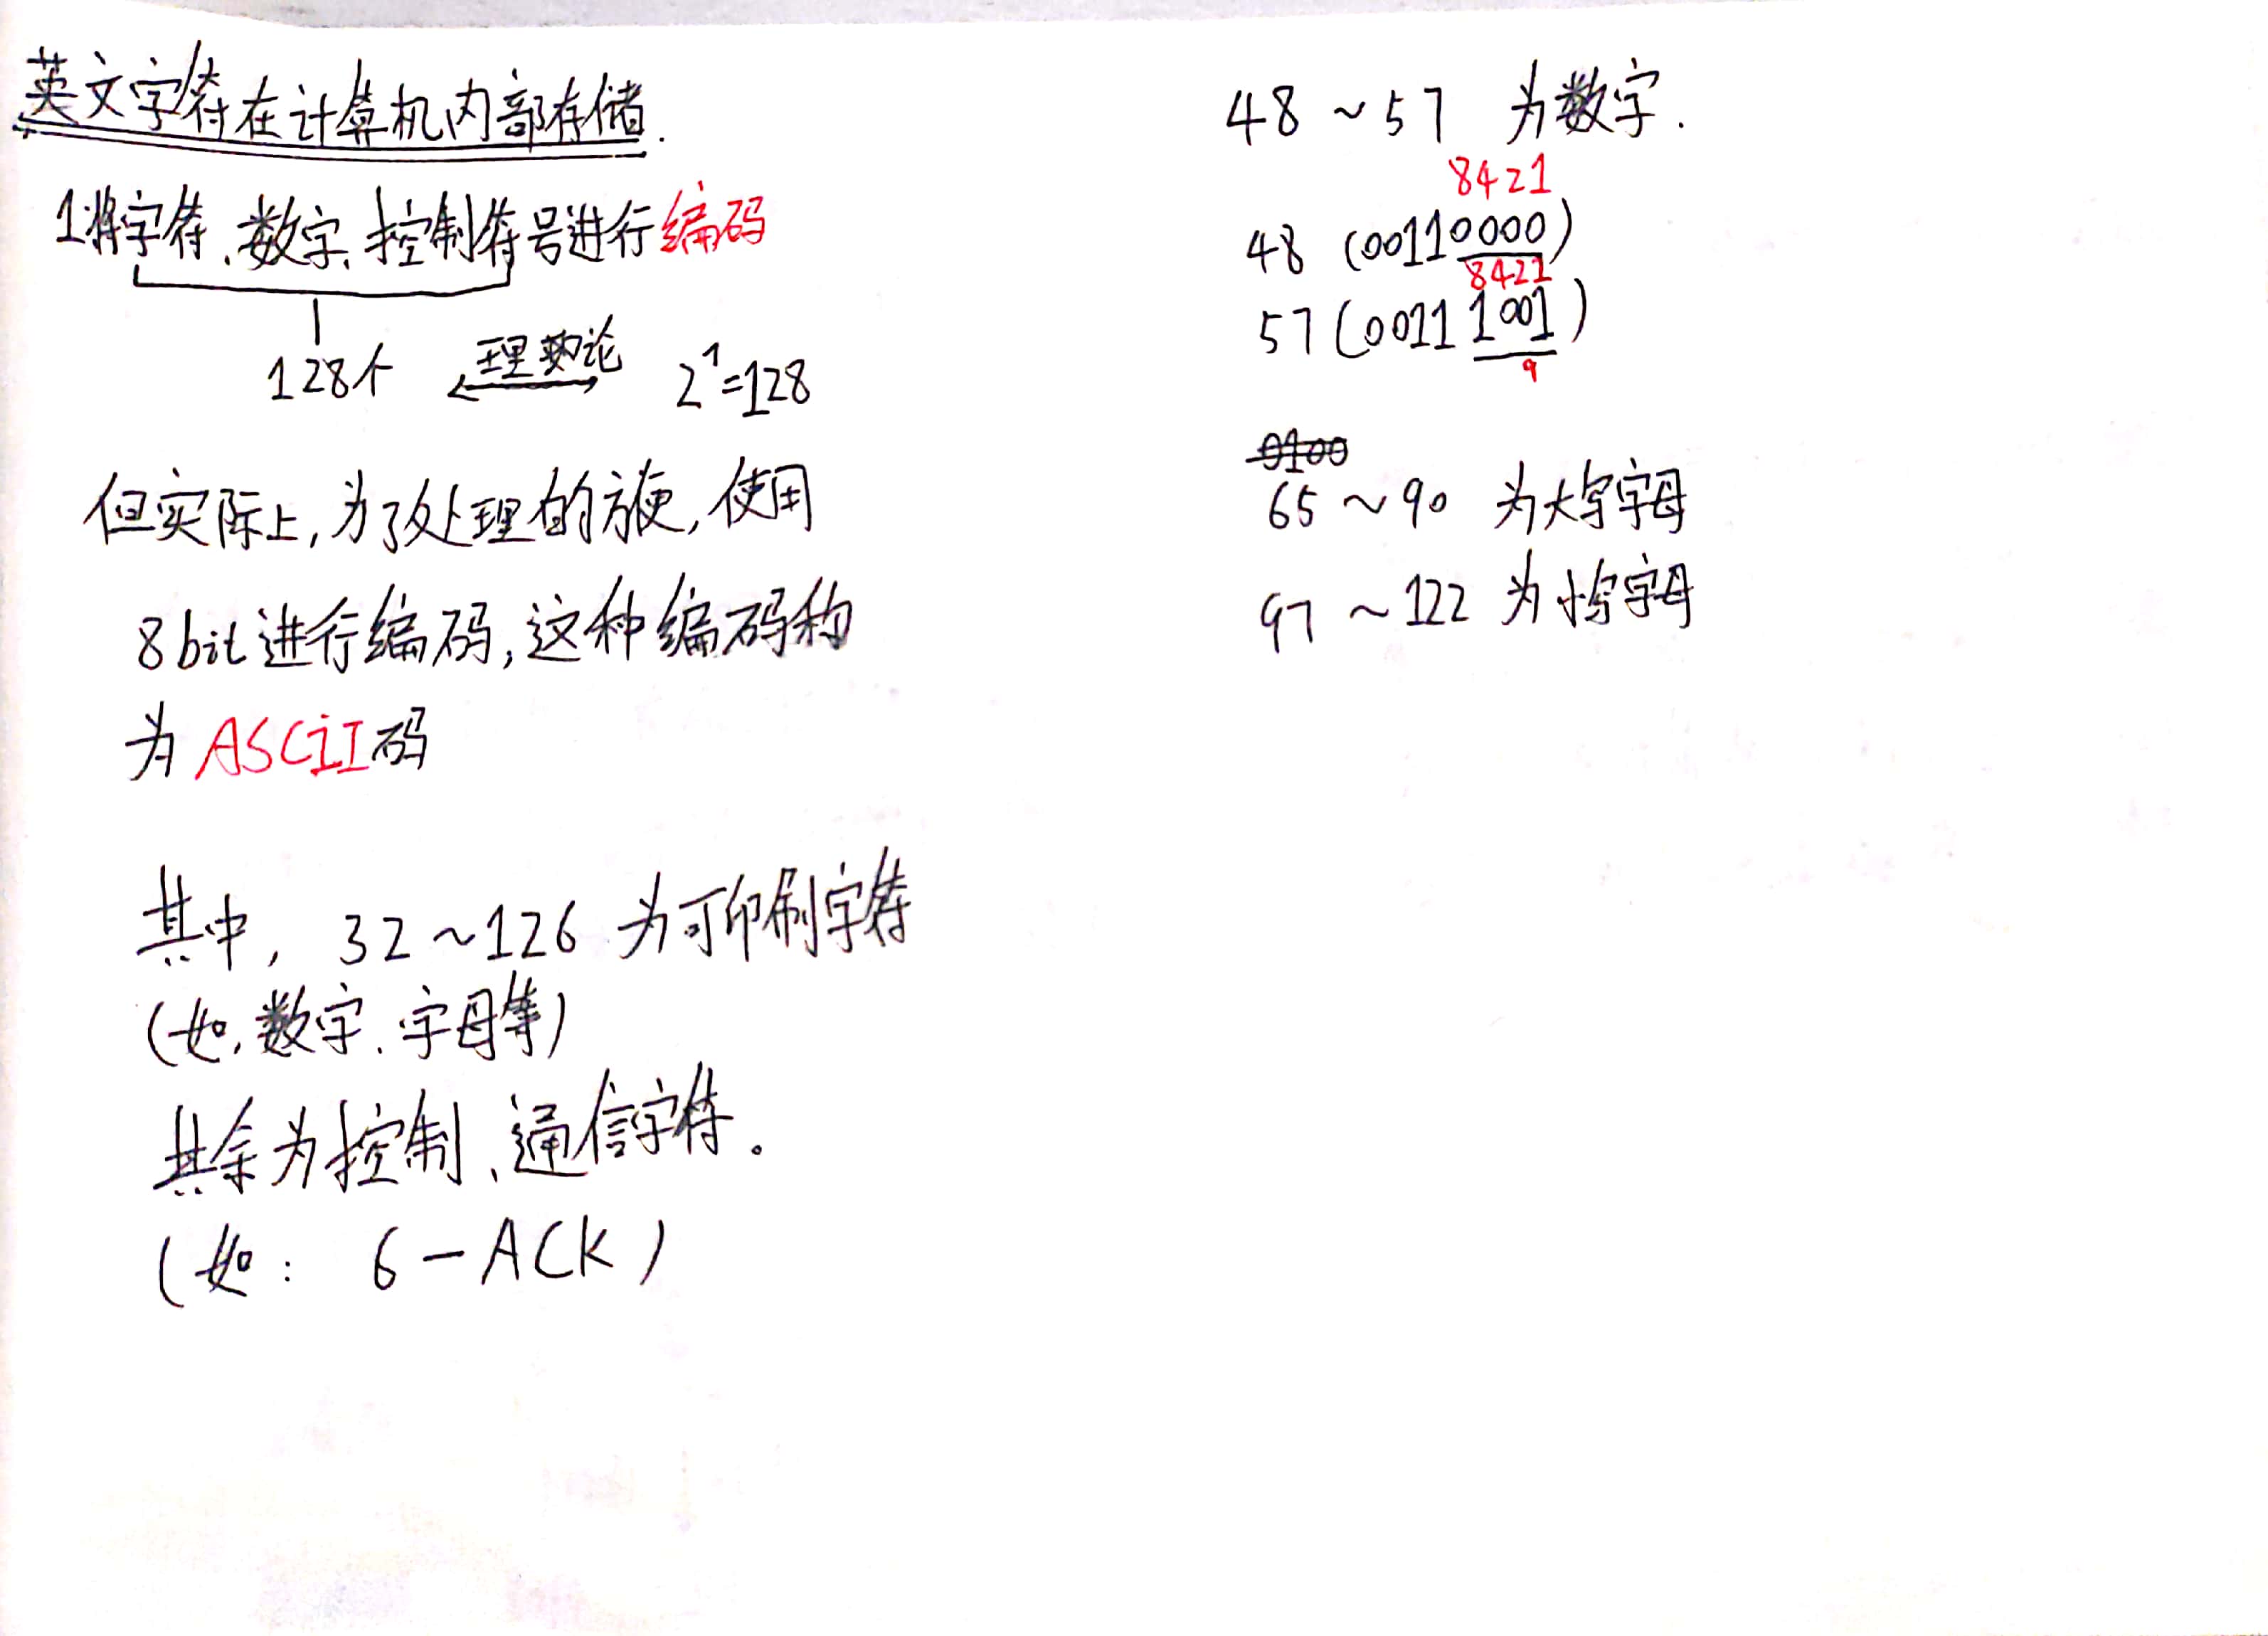 英文字符在计算机内部存储.
1.将字符、数字、控制符号进行编码
128个 理论 2^7=128
但实际上,为了处理的方便,使用
8bit进行编码,这种编码称
为ASCiI码
其中, 32~126 为可印刷字符
(如,数字、字母等)
其余为控制、通信字符。
(如: 6-ACK)
48~57 为数字.
8421
48 (00110000)
8421
57 (00111001)
9
65~90 为大写字母
97~122 为小写字母